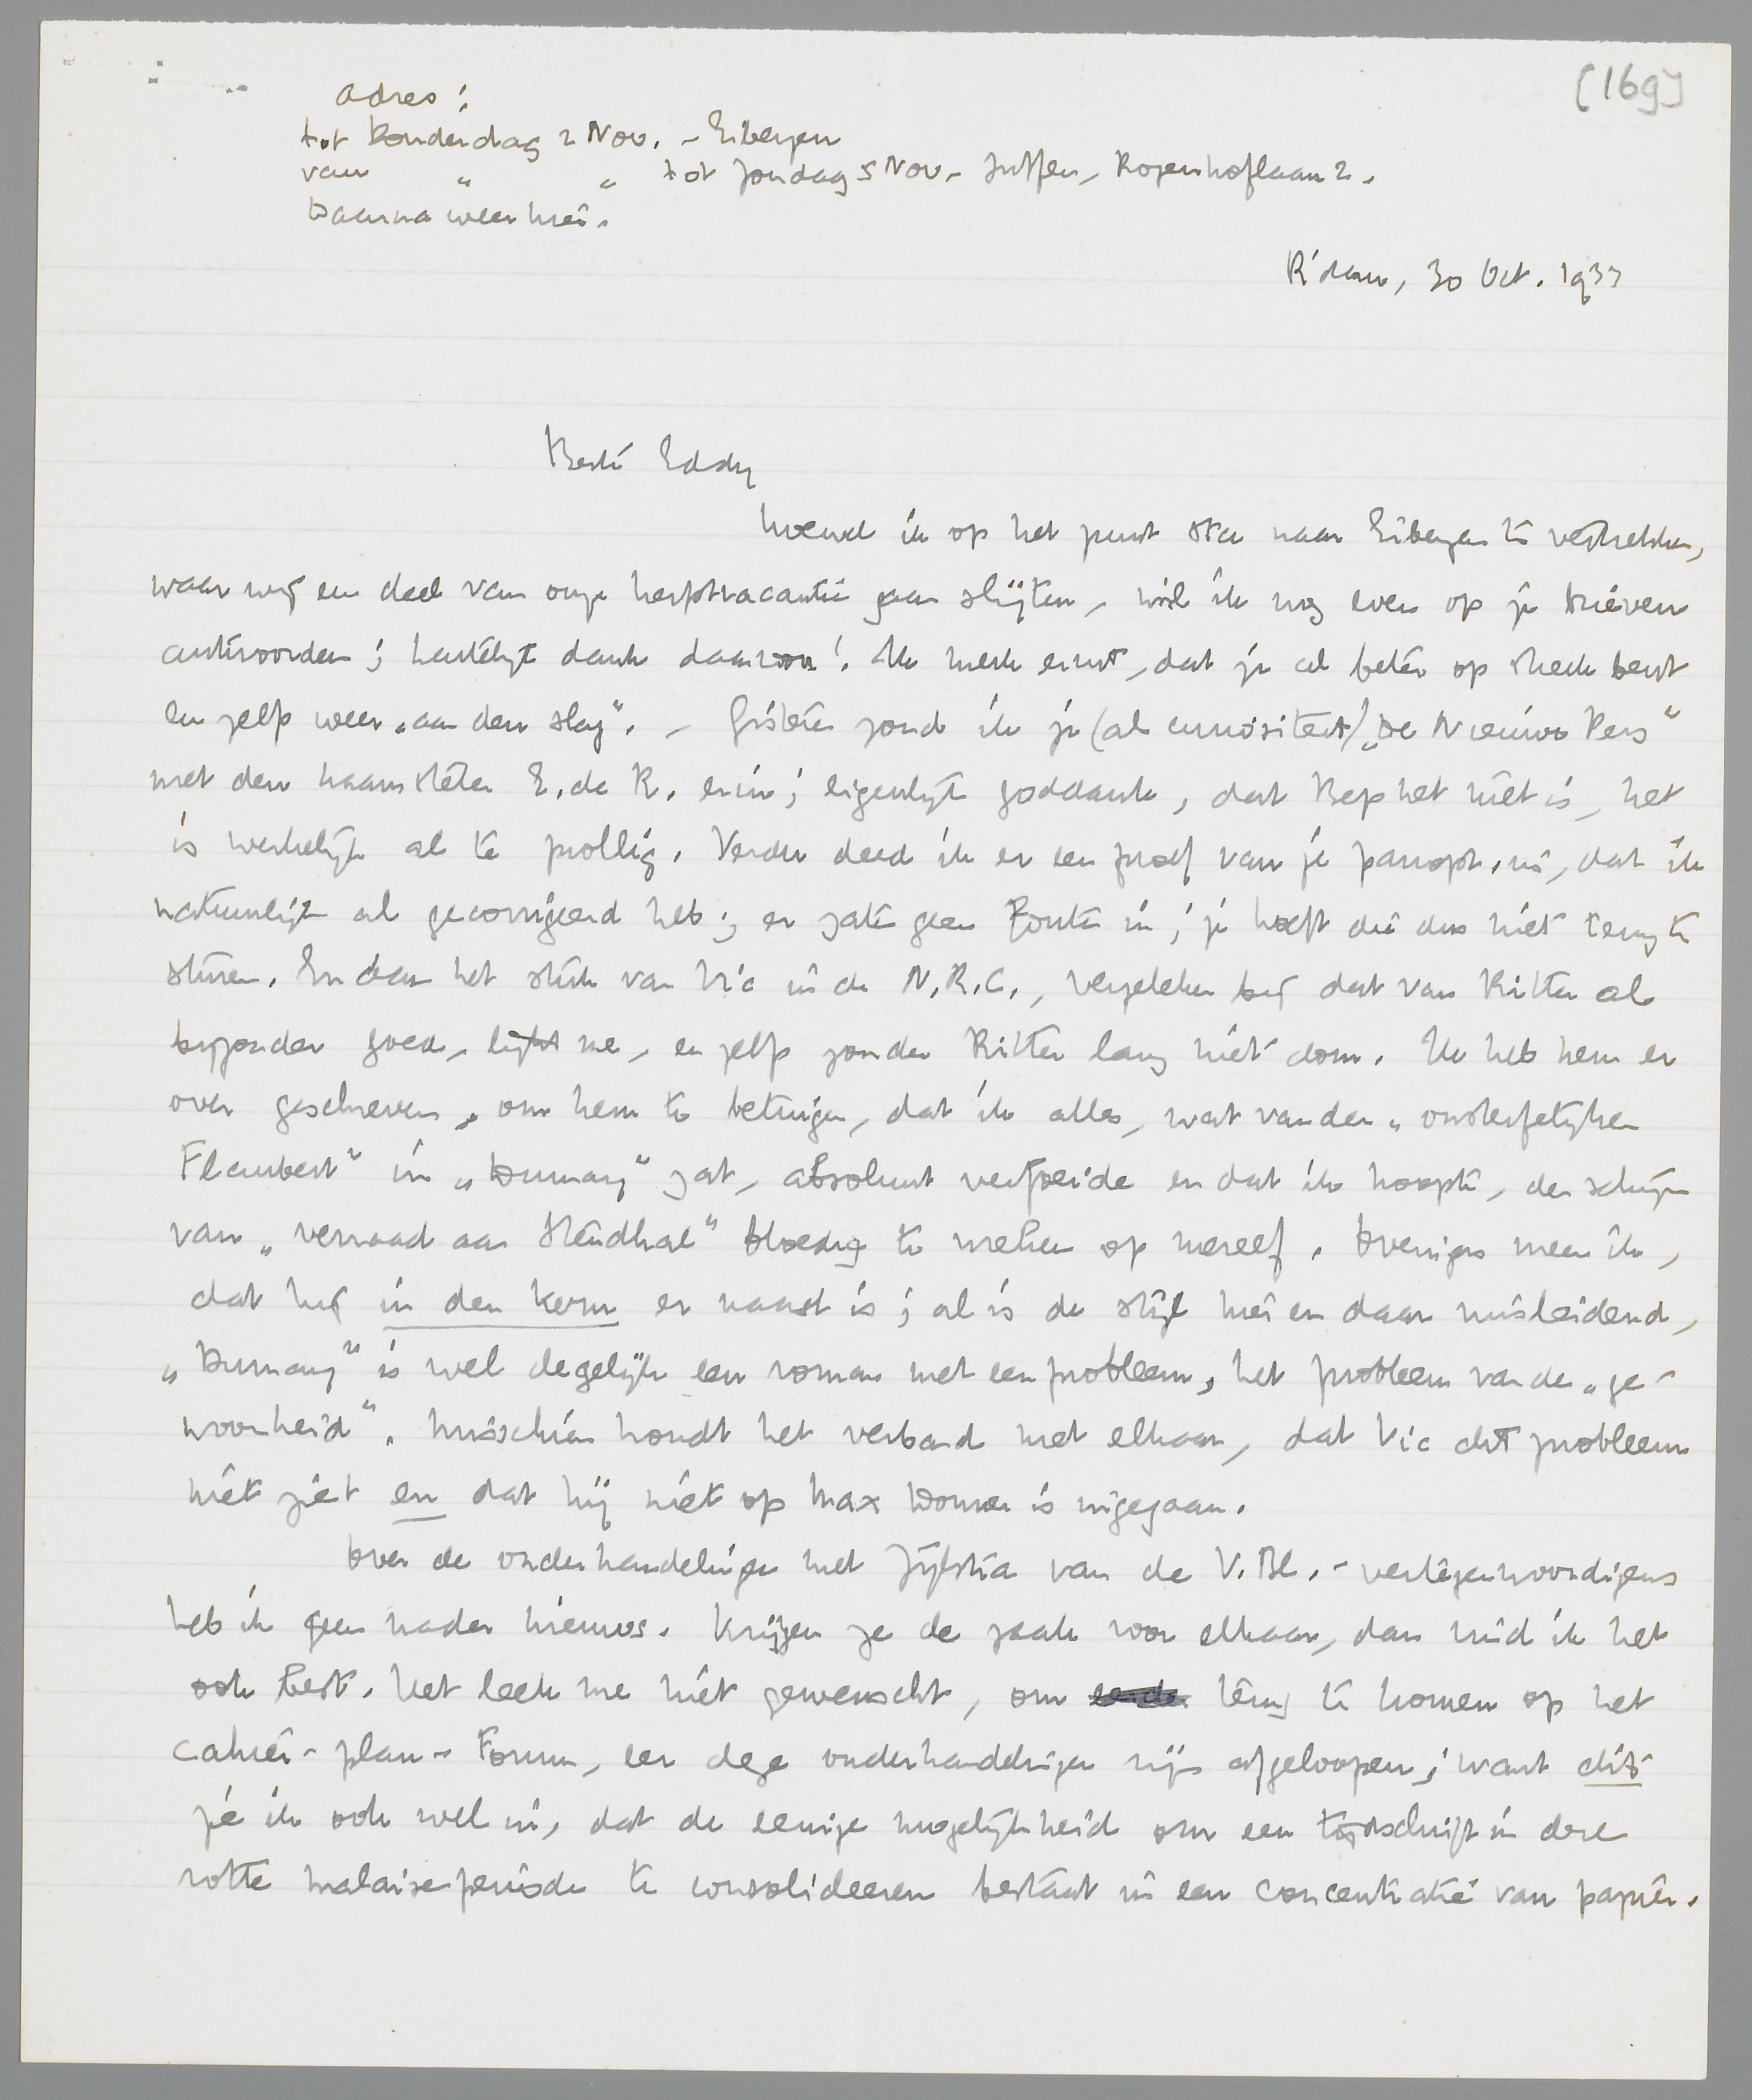 [169]
adres:
tot Donderdag 2 Nov. - Eibergen
van " " tot Zondag 5 Nov. - Zutfen, Rozenhoflaan 2.
Daarna weer hier.
R'dam, 30 Oct. 1933
Beste Eddy
Terwijl ik op het punt sta naar Eibergen te vertrekken,
waar wij een deel van onze herfstvacantie gaan slijten, wil ik nog even op je brieven
antwoorden; hartelijk dank daarvoor! Ik merk eruit, dat je al beter op streek bent
en zelf weer „aan den slag". - Gisteren zond ik je (als curiositeit) „De Nieuwe Pers"
met den haarsteter E. de R. erin; eigenlijk goddank, dat Bep het niet is, het
is werkelijk al te prollig. Verder deed ik er een proef van je panopt. in, dat ik
natuurlijk al gecorrigeerd heb; er zaten geen fouten in; je hoeft die dus niet terug te
sturen. En dan het stuk van Vic in de N.R.C., vergeleken bij dat van Ritter al
bijzonder goed, lijkt me, en zelfs zonder Ritter lang niet dom. Ik heb hem er
over geschreven, om hem te betuigen, dat ik alles, wat van den „onsterfelijken
Flaubert" in „Dumay" zat, absoluut verfoeide en dat ik hoopte, den schijn
van „verraad aan Stendhal" bloedig te wreken op mezelf. Overigens meen ik,
dat hij in den kern er naast is; al is de stijl hier en daar misleidend,
„Dumay" is wel degelijk een roman met een probleem, het probleem van de „ge-
woonheid". Misschien houdt het verband met elkaar, dat Vic dit probleem
niet ziet en dat hij niet op Max Donner is ingegaan.
Over de onderhandelingen met Zijlstra van de V. Bl. - vertegenwoordigers
heb ik geen nader nieuws. Krijgen ze de zaak voor elkaar, dan vind ik het
ook best. Het leek me niet gewenscht, om terug te komen op het
cahier-plan-Forum, eer deze onderhandelingen zijn afgeloopen; want dit
zie ik ook wel in, dat de eenige mogelijkheid om een tijdschrift in deze
rotte malaiseperiode te consolideeren bestaat in een concentratie van papier.